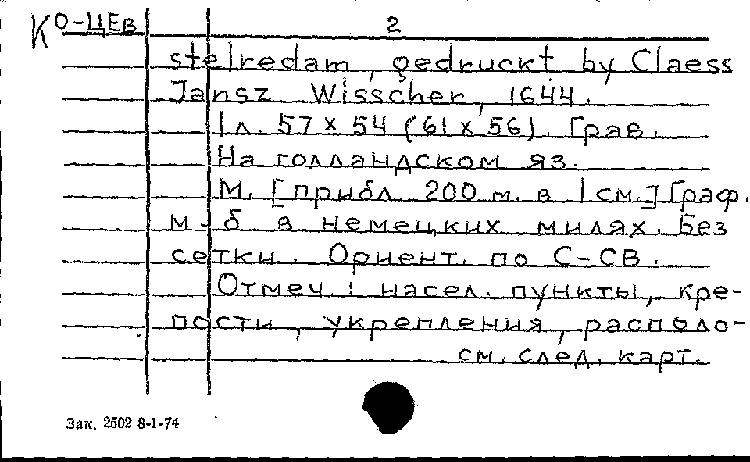 КО-ЦЕВ 2
stelredam, gedruckt by Claess
Jansz Wisscher, 1644.
1 л. 57 x 54 (61 x 56). Грав.
На голландском яз.
М. [прибл. 200 м. в 1 см.] Граф.
м-б в немецких милях. Без
сетки. Ориент. по С-СВ.
Отмеч.: насел. пункты, кре-
пости, укрепления, располо-
см. след. карт.
Зак. 2502 8-1-74